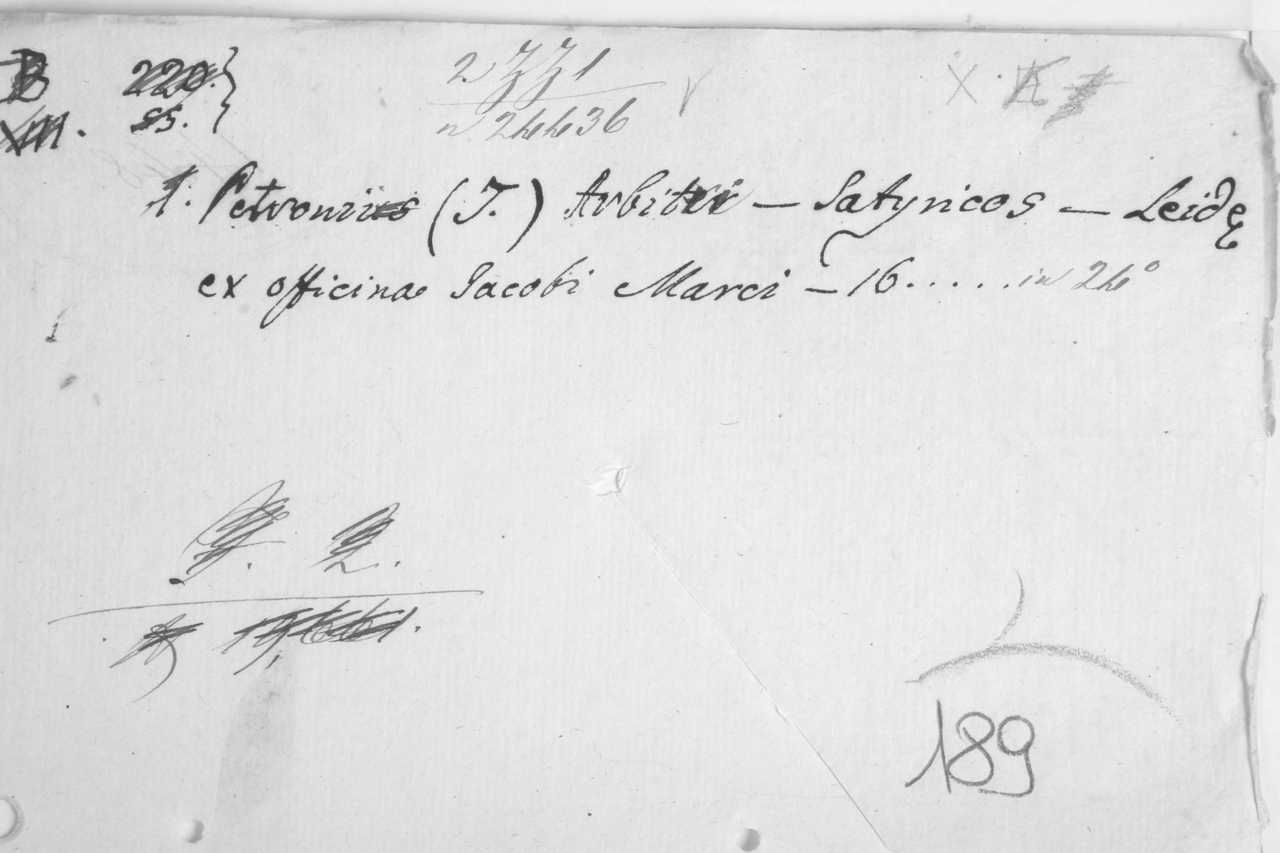 B 220.
XIII. 55.
2 ZZ 1
n 24436
X
1. Petronii (T.) Arbitri — Satyricos — Leidę
ex officina Jacobi Marci — 16..... in 24°
189